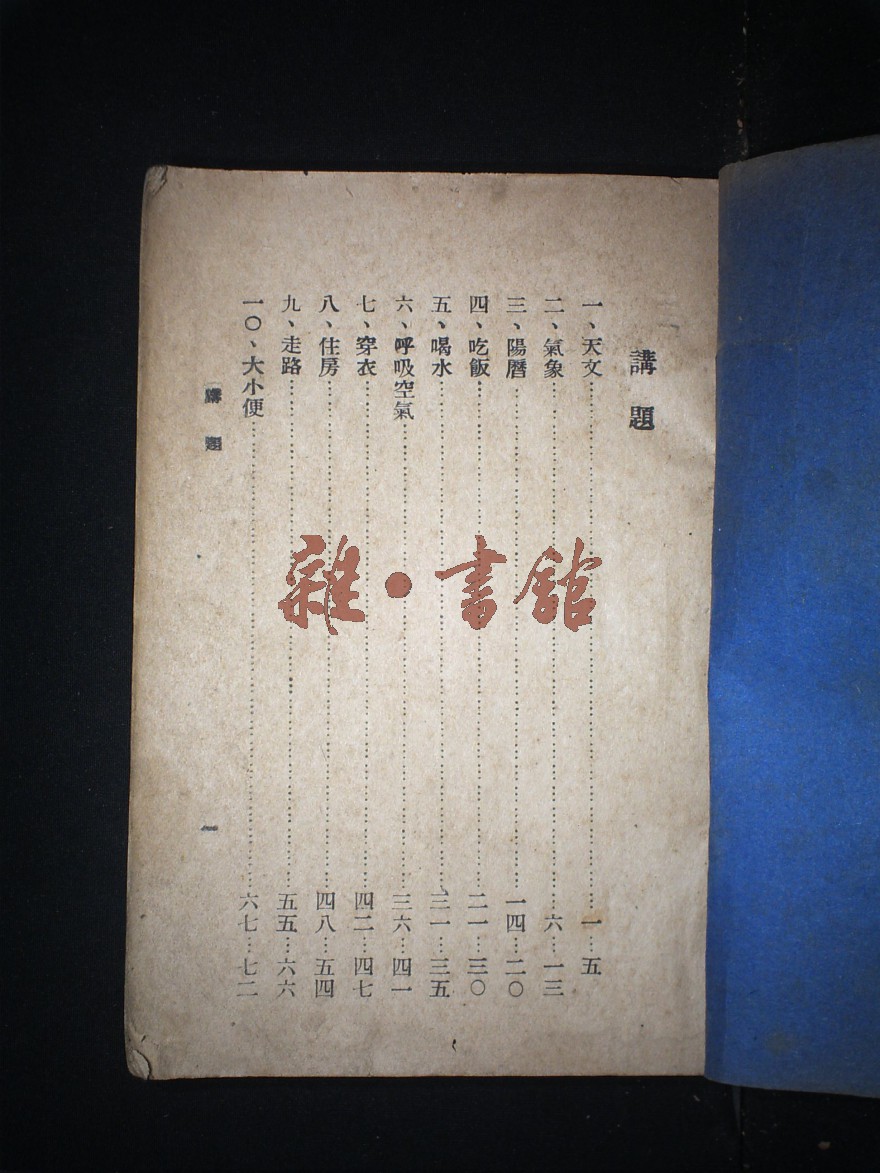 講題
一、天文……一…五
二、氣象……六…一三
三、陽曆……一四…二〇
四、吃飯……二一…三〇
五、喝水……三一…三五
六、呼吸空氣……三六…四一
七、穿衣……四二…四七
八、住房……四八…五四
九、走路……五五…六六
一〇、大小便……六七…七二
講題
一
雜·書館